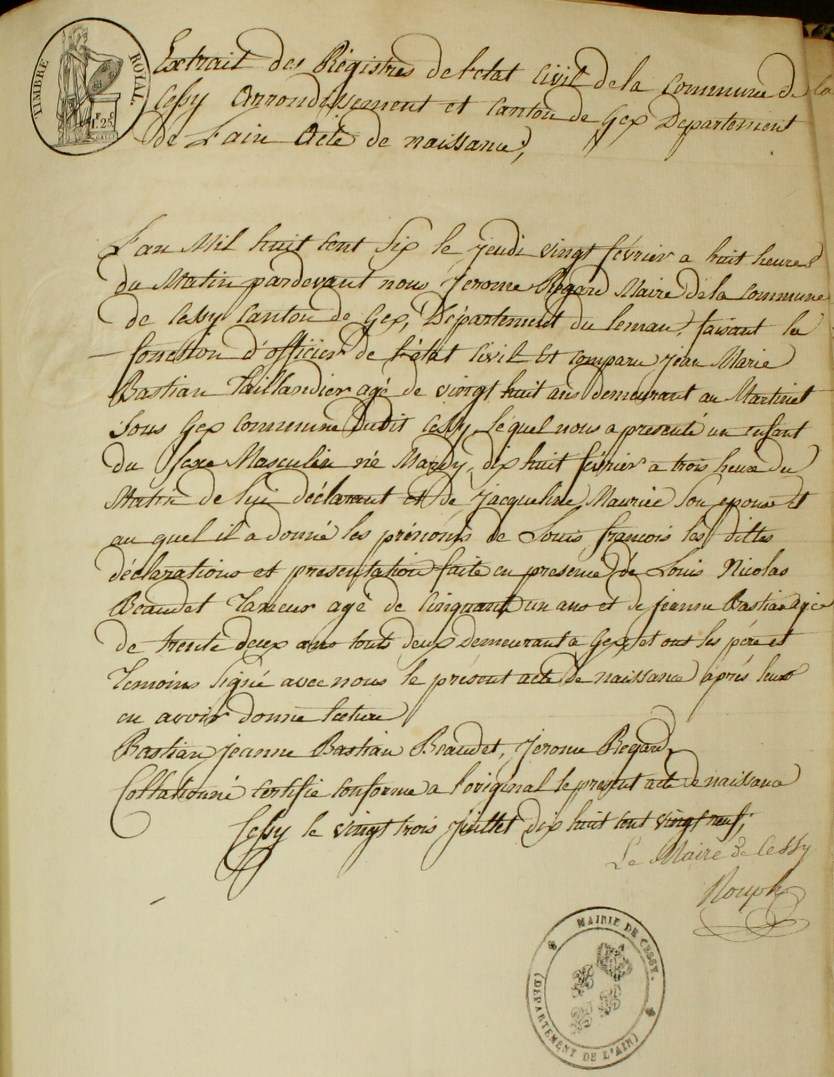 TIMBRE ROYAL.
1F 25C
Extrait des Régistres de l'etat Civil de la Commune de la
Cessy Arrondissement et Canton de Gex Departement
de L'ain Acte de naissance,
L'an Mil huit Cent Six le jeudi vingt février a huit heures
du Matin pardevant nous Jerome Regard Maire de la Commune
de Cessy Canton de Gex, Département du leman, faisant la
fonction d'officier de l'état Civil Et comparu jean Marie
Bastian Taillandier agé de vingt huit ans demeurant au Martinet
Sous Gex commune dudit Cessy, lequel nous a presenté un enfant
du sexe Masculin né Mardy, dix huit février a trois heure du
Matin de lui déclarant et de Jacqueline Maurice son epouse et
au quel il a donné les prénoms de Louis françois les dittes
déclarations et presentation faite en presence de Louis Nicolas
Beaudet Taneur agé de Cinquante un ans et de jeanne Bastian agée
de trente deux ans touts deux demeurant a Gex et ont les pére et
Temoins Signé avec nous le présent acte de naissance aprés leur
en avoir donné lecture
Bastian jeanne Bastian Beaudet, Jerome Regard,
Collationné certifié Conforme a l'original le present acte de naissance
Cessy le vingt trois Juillet dix huit cent vingt neuf,
Le Maire de Cessy
MAIRIE DE CESSY.
(DEPARTEMENT DE L'AIN)